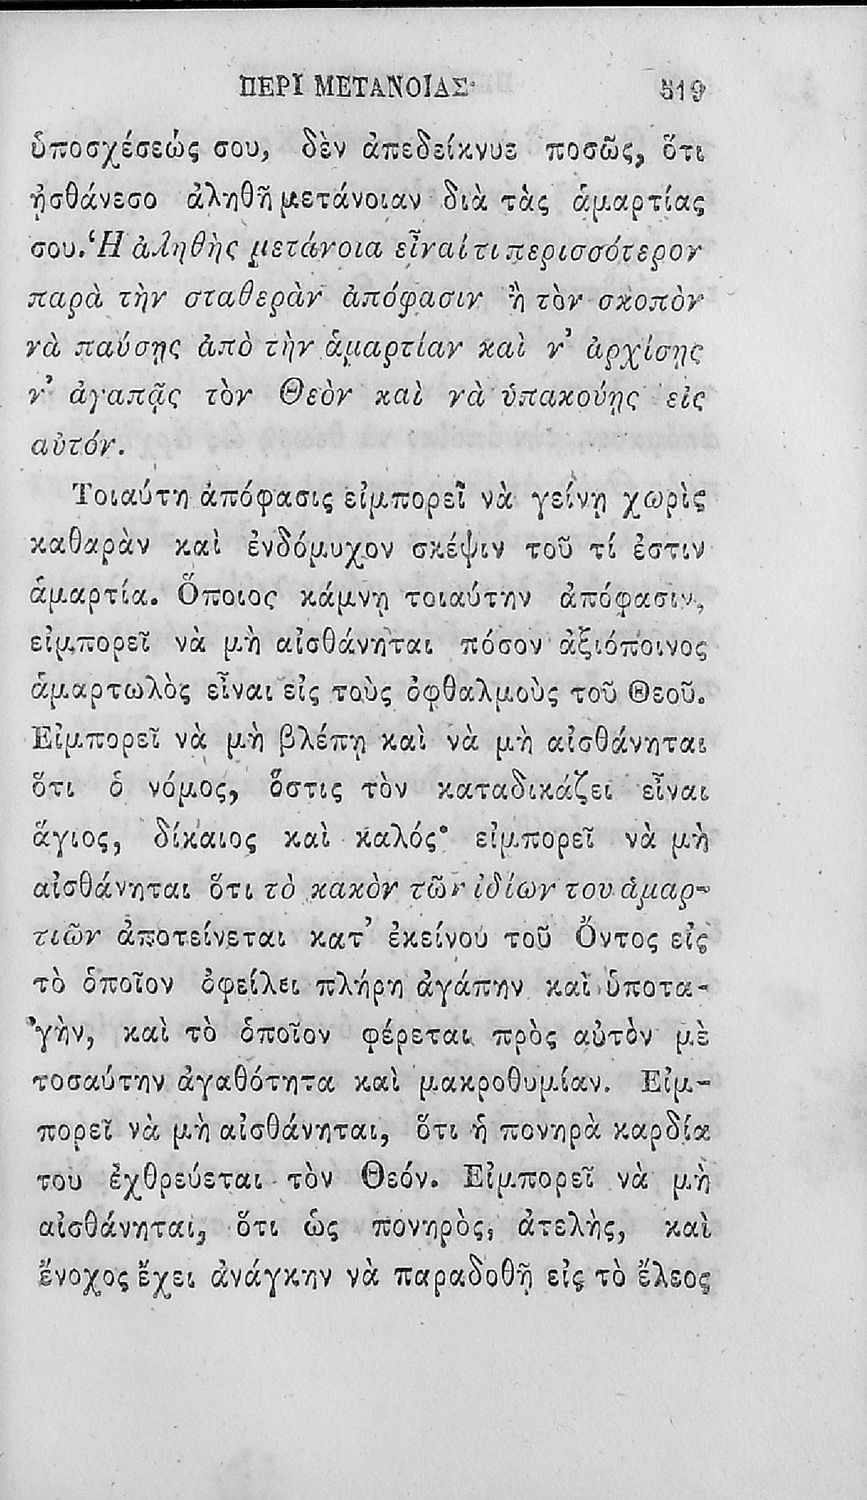 ΠΕΡῚ ΜΕΤΑΝΟΊΑΣ· 519
ὑποσχέσεώς σου, δὲν ἀπεδείκνυε ποσῶς, ὅτι
ᾐσθάνεσο ἀληθῆ μετάνοιαν διὰ τὰς ἁμαρτίας
σου. Ἡ ἀληθὴς μετάνοια εἶναί τι περισσότερον
παρὰ τὴν σταθερὰν ἀπόφασιν ἢ τὸν σκοπὸν
νὰ παύσῃς ἀπὸ τὴν ἁμαρτίαν καὶ ν’ ἀρχίσῃς
ν’ ἀγαπᾷς τὸν Θεὸν καὶ νὰ ὑπακούῃς εἰς
αὐτόν.
Τοιαύτη ἀπόφασις εἰμπορεῖ νὰ γείνῃ χωρὶς
καθαρὰν καὶ ἐνδόμυχον σκέψιν τοῦ τί ἐστιν
ἁμαρτία. Ὅποιος κάμνῃ τοιαύτην ἀπόφασιν,
εἰμπορεῖ νὰ μὴ αἰσθάνηται πόσον ἀξιόποινος
ἁμαρτωλὸς εἶναι εἰς τοὺς ὀφθαλμοὺς τοῦ Θεοῦ.
Εἰμπορεῖ νὰ μὴ βλέπῃ καὶ νὰ μὴ αἰσθάνηται
ὅτι ὁ νόμος, ὅστις τὸν καταδικάζει εἶναι
ἅγιος, δίκαιος καὶ καλός· εἰμπορεῖ νὰ μὴ
αἰσθάνηται ὅτι τὸ κακὸν τῶν ἰδίων του ἁμαρ-
τιῶν ἀποτείνεται κατ’ ἐκείνου τοῦ Ὄντος εἰς
τὸ ὁποῖον ὀφείλει πλήρη ἀγάπην καὶ ὑποτα-
γὴν, καὶ τὸ ὁποῖον φέρεται πρὸς αὐτὸν μὲ
τοσαύτην ἀγαθότητα καὶ μακροθυμίαν. Εἰμ-
πορεῖ νὰ μὴ αἰσθάνηται, ὅτι ἡ πονηρὰ καρδία
του ἐχθρεύεται τὸν Θεόν. Εἰμπορεῖ νὰ μὴ
αἰσθάνηται, ὅτι ὡς πονηρὸς, ἀτελὴς, καὶ
ἔνοχος ἔχει ἀνάγκην νὰ παραδοθῇ εἰς τὸ ἔλεος